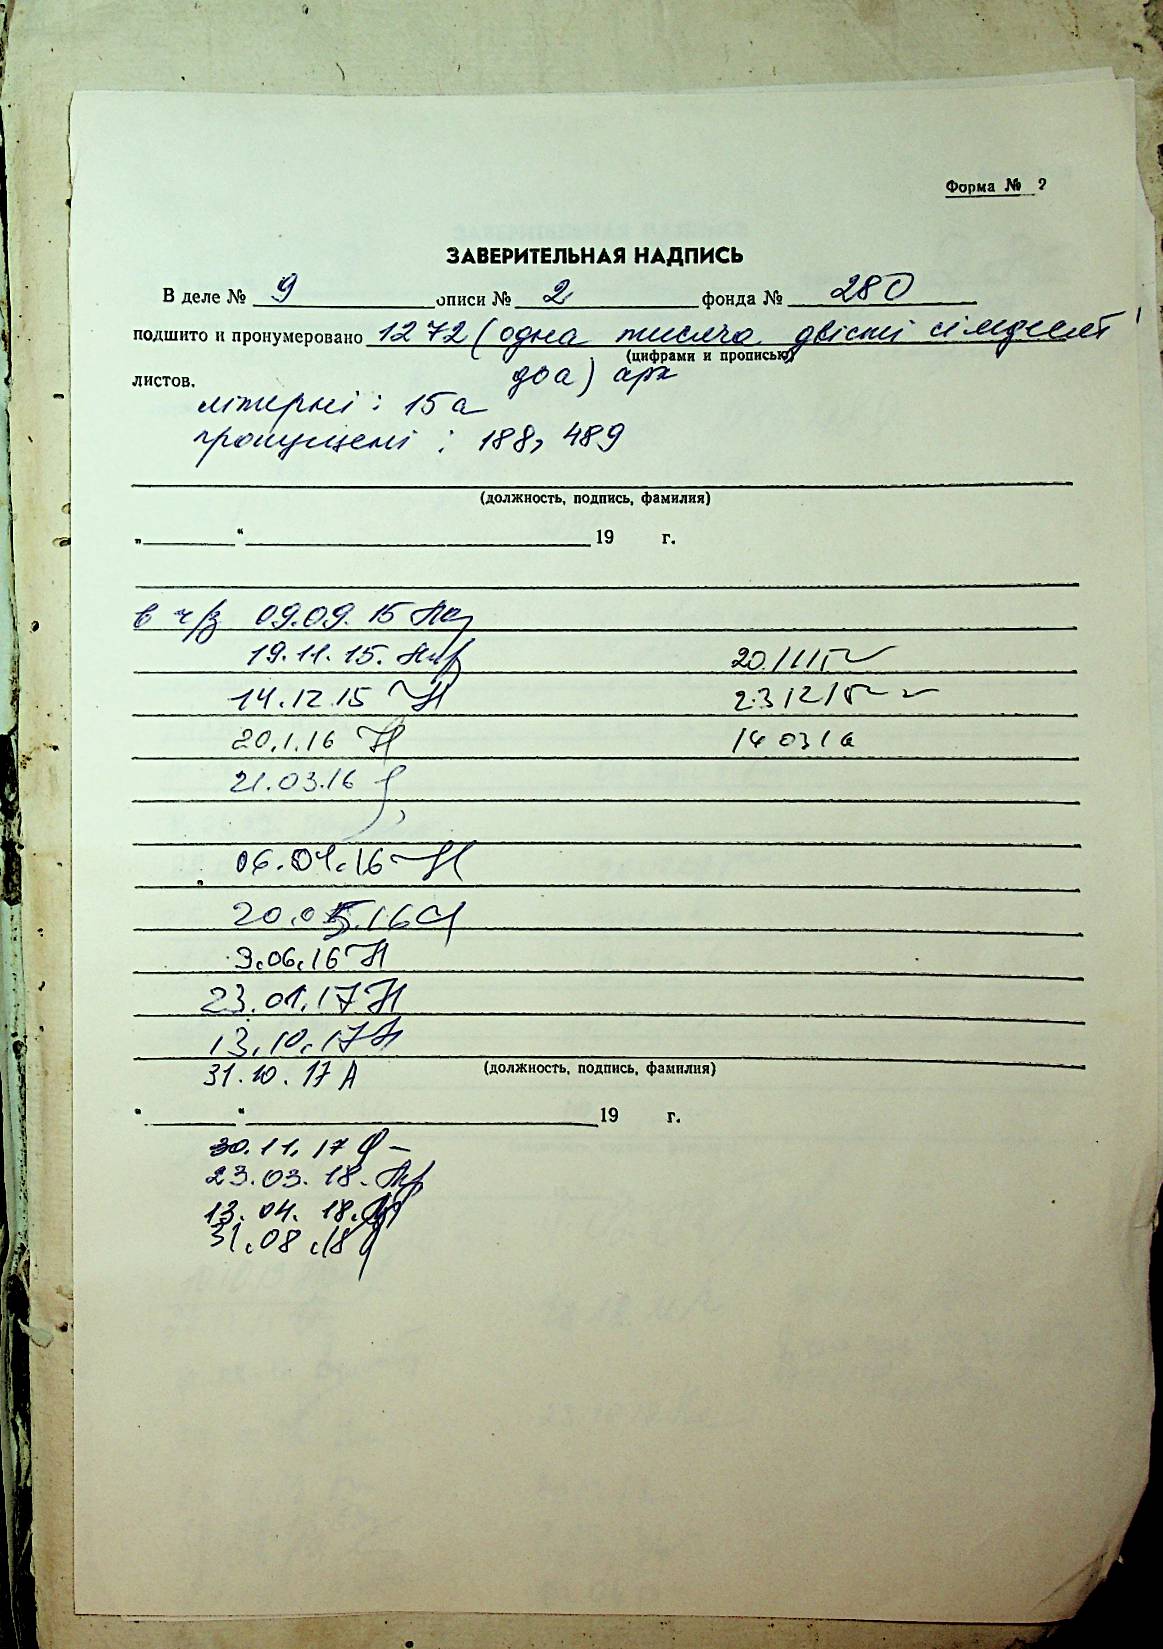 Форма № 2
ЗАВЕРИТЕЛЬНАЯ НАДПИСЬ
В деле № 9 описи № 2 фонда № 280
подшито и пронумеровано 1272 (одна тисяча двісті сімдесят
(цифрами и прописью)
листов. два) арк
літерні: 15а
пропущені: 188, 489
(должность, подпись, фамилия)
„ “ 19 г.
в ч/з 09.09.15
19.11.15. 20.11.15
14.12.15 23.12.15
20.1.16 14.03.16
21.03.16
06.04.16
20.05.16
3.06.16
23.01.17
13.10.17
31.10.17
(должность, подпись, фамилия)
“ “ 19 г.
30.11.17
23.03.18.
13.04.18.
31.08.18